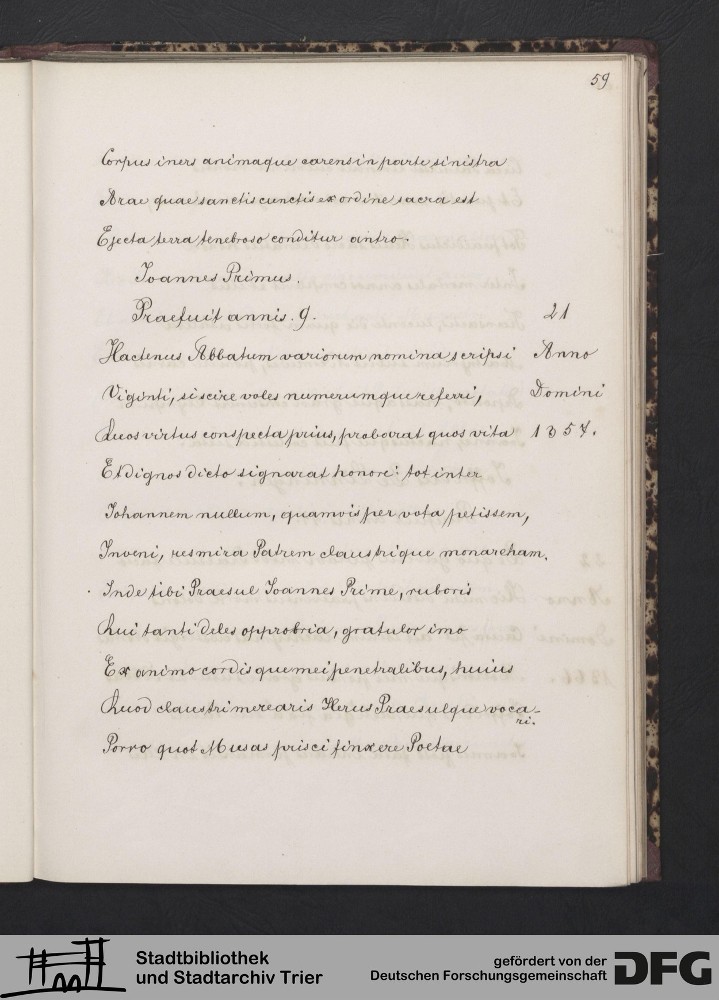 59
Corpus iners animaque carens in parte sinistra
Arae quae sanctis cunctis ex ordine sacra est
Ejecta terra tenebroso conditur antro.
Joannes Primus.
Praefuit annis. 9.
21
Hactenus Abbatum variorum nomina scripsi
Anno
Viginti, si scire voles numerumque referri,
Domini
Quos virtus conspecta prius, probarat quos vita
1357.
Et dignos dicto signarat honore: tot inter
Johannem nullum, quamvis per vota petissem,
Inveni, res mira Patrem claustrique monarcham.
Inde tibi Praesul Joannes Prime, ruboris
Qui tanti deles opprobria, gratulor imo
Ex animo cordisque mei penetralibus, huius
Quod claustri merearis Herus Praesulque voca-
ri.
Porro quot Musas prisci finxere Poetae
Stadtbibliothek
und Stadtarchiv Trier
gefördert von der
Deutschen Forschungsgemeinschaft
DFG